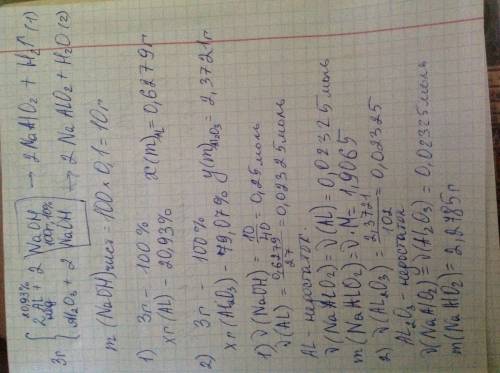 3г { 20,93% 2Al + 2 NaOH 100г, 10% → 2NaAlO₂ + H₂↑ (1)
Al₂O₃ + 2 NaOH → 2 NaAlO₂ + H₂O (2)
m (NaOH) чист = 100 × 0,1 = 10г
1) 3г – 100% x(m)Al = 0,6279г
xг (Al) – 20,93%
2) 3г – 100% y(m)Al₂O₃ = 2,3721г
xг (Al₂O₃) – 79,07%
1) ν(NaOH) = 10/40 = 0,25 моль
ν(Al) = 0,6279/27 = 0,02325 моль
Al – недостаток
ν(NaAlO₂) = ν(Al) = 0,02325 моль
m(NaAlO₂) = ν · M = 1,9065
2) ν(Al₂O₃) = 2,3721/102 = 0,02325
Al₂O₃ – недостаток
ν(NaAlO₂) = ν(Al₂O₃) = 0,02325 моль
m(NaAlO₂) = 2,2485г